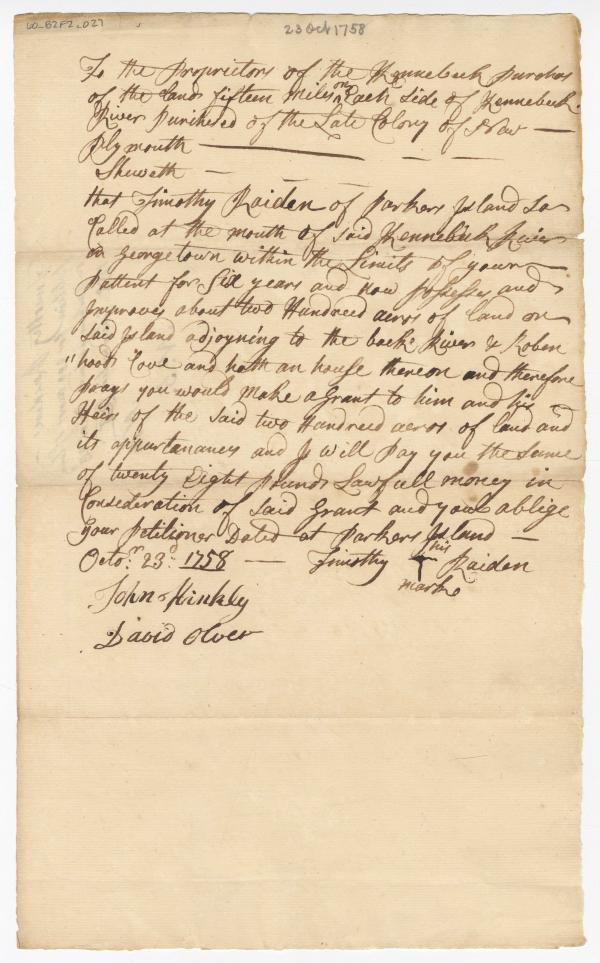 LO_B2F2_027
23 Oct 1758
To the Proprietors of the Kennebeck Purchas
of the Lands fifteen miles on Each Side of Kennebeck
River Purchesed of the Late Colony of New —
Plymouth — — —
Sheweth — —
that Timothy Raiden of Parkers Island So
Called at the mouth of said Kennebeck River
in Georgetown within the Limits of your
Pattent for Six years and now possesses and
Improves about two Hundreed acros of land on
said Island adjoyning to the back River & Roben
"hoods Cove and hath an house thereon and therefore
prays you would make a Grant to him and his
Heirs of the said two Hundreed acros of land and
its appurtanances and Is will Pay you the Some
of twenty Eight pounds Lawfull money in
Consideration of said Grant and youl ablige
your Petitioner Dated at Parkers Island —
Octor. 23d. 1758 — Timothy his Raiden
mark
John Hinkly
David Olver